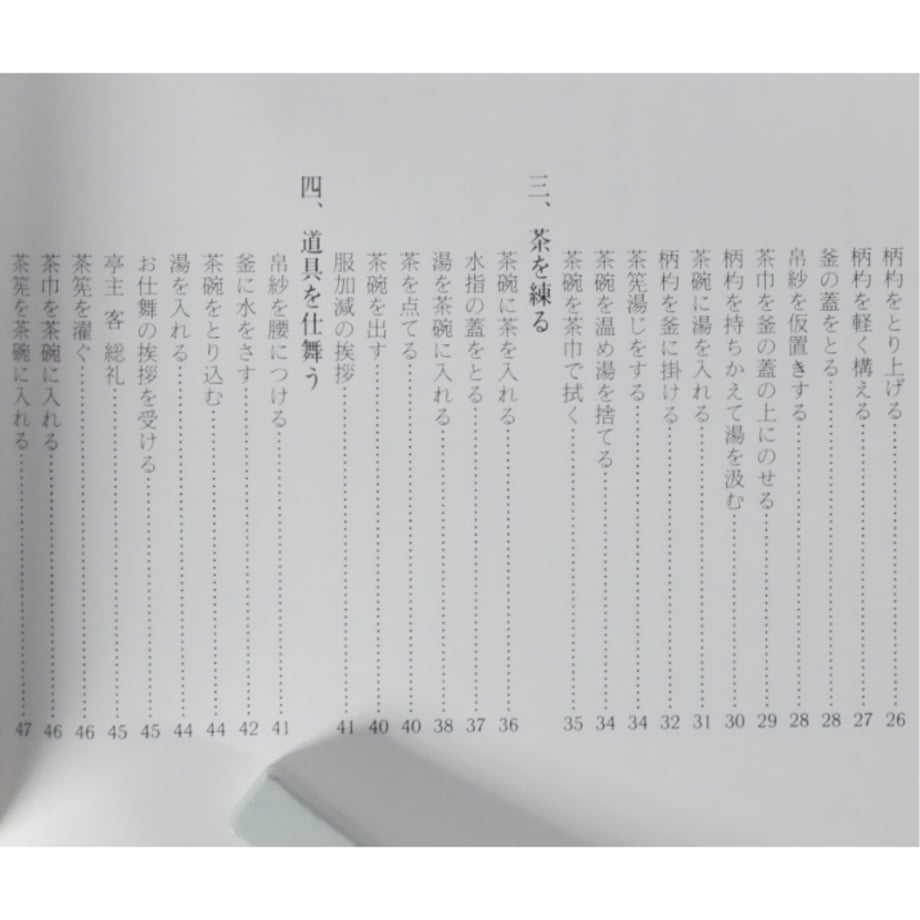 柄杓をとり上げる……26
柄杓を軽く構える……27
釜の蓋をとる……28
帛紗を仮置きする……28
茶巾を釜の蓋の上にのせる……29
柄杓を持ちかえて湯を汲む……30
茶碗に湯を入れる……31
柄杓を釜に掛ける……32
茶筅湯じをする……34
茶碗を温め湯を捨てる……34
茶碗を茶巾で拭く……35
三、茶を練る
茶碗に茶を入れる……36
水指の蓋をとる……37
湯を茶碗に入れる……38
茶を点てる……40
茶碗を出す……40
服加減の挨拶……41
四、道具を仕舞う
帛紗を腰につける……41
釜に水をさす……42
茶碗をとり込む……44
湯を入れる……44
お仕舞の挨拶を受ける……45
亭主 客 総礼……45
茶筅を濯ぐ……46
茶巾を茶碗に入れる……46
茶筅を茶碗に入れる……47